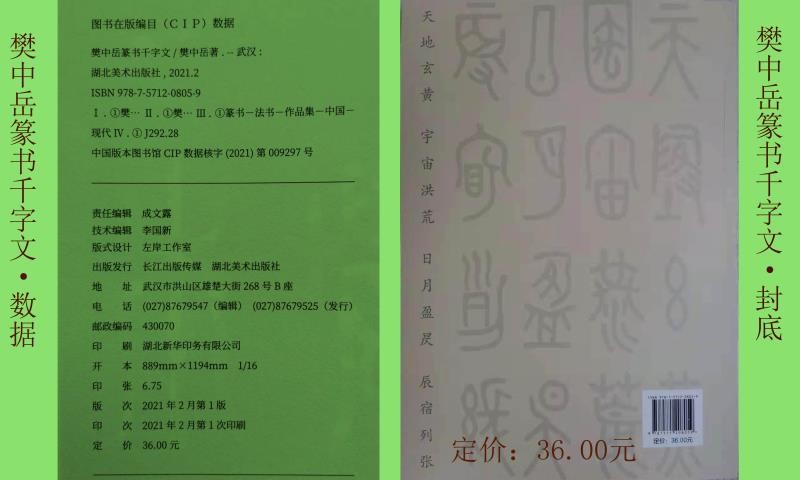 樊中岳篆书千字文·数据
图书在版编目（CIP）数据
樊中岳篆书千字文 / 樊中岳著 . -- 武汉 :
湖北美术出版社 , 2021.2
ISBN 978-7-5712-0805-9
Ⅰ . ①樊… Ⅱ . ①樊… Ⅲ . ①篆书－法书－作品集－中国－
现代 Ⅳ . ① J292.28
中国版本图书馆 CIP 数据核字 (2021) 第 009297 号
责任编辑 成文露
技术编辑 李国新
版式设计 左岸工作室
出版发行 长江出版传媒 湖北美术出版社
地 址 武汉市洪山区雄楚大街 268 号 B 座
电 话 (027)87679547（编辑） (027)87679525（发行）
邮政编码 430070
印 刷 湖北新华印务有限公司
开 本 889mm×1194mm 1/16
印 张 6.75
版 次 2021 年 2 月第 1 版
印 次 2021 年 2 月第 1 次印刷
定 价 36.00 元
天地玄黄 宇宙洪荒 日月盈昃 辰宿列张
定价：36.00元
定价：36.00元
樊中岳篆书千字文·封底